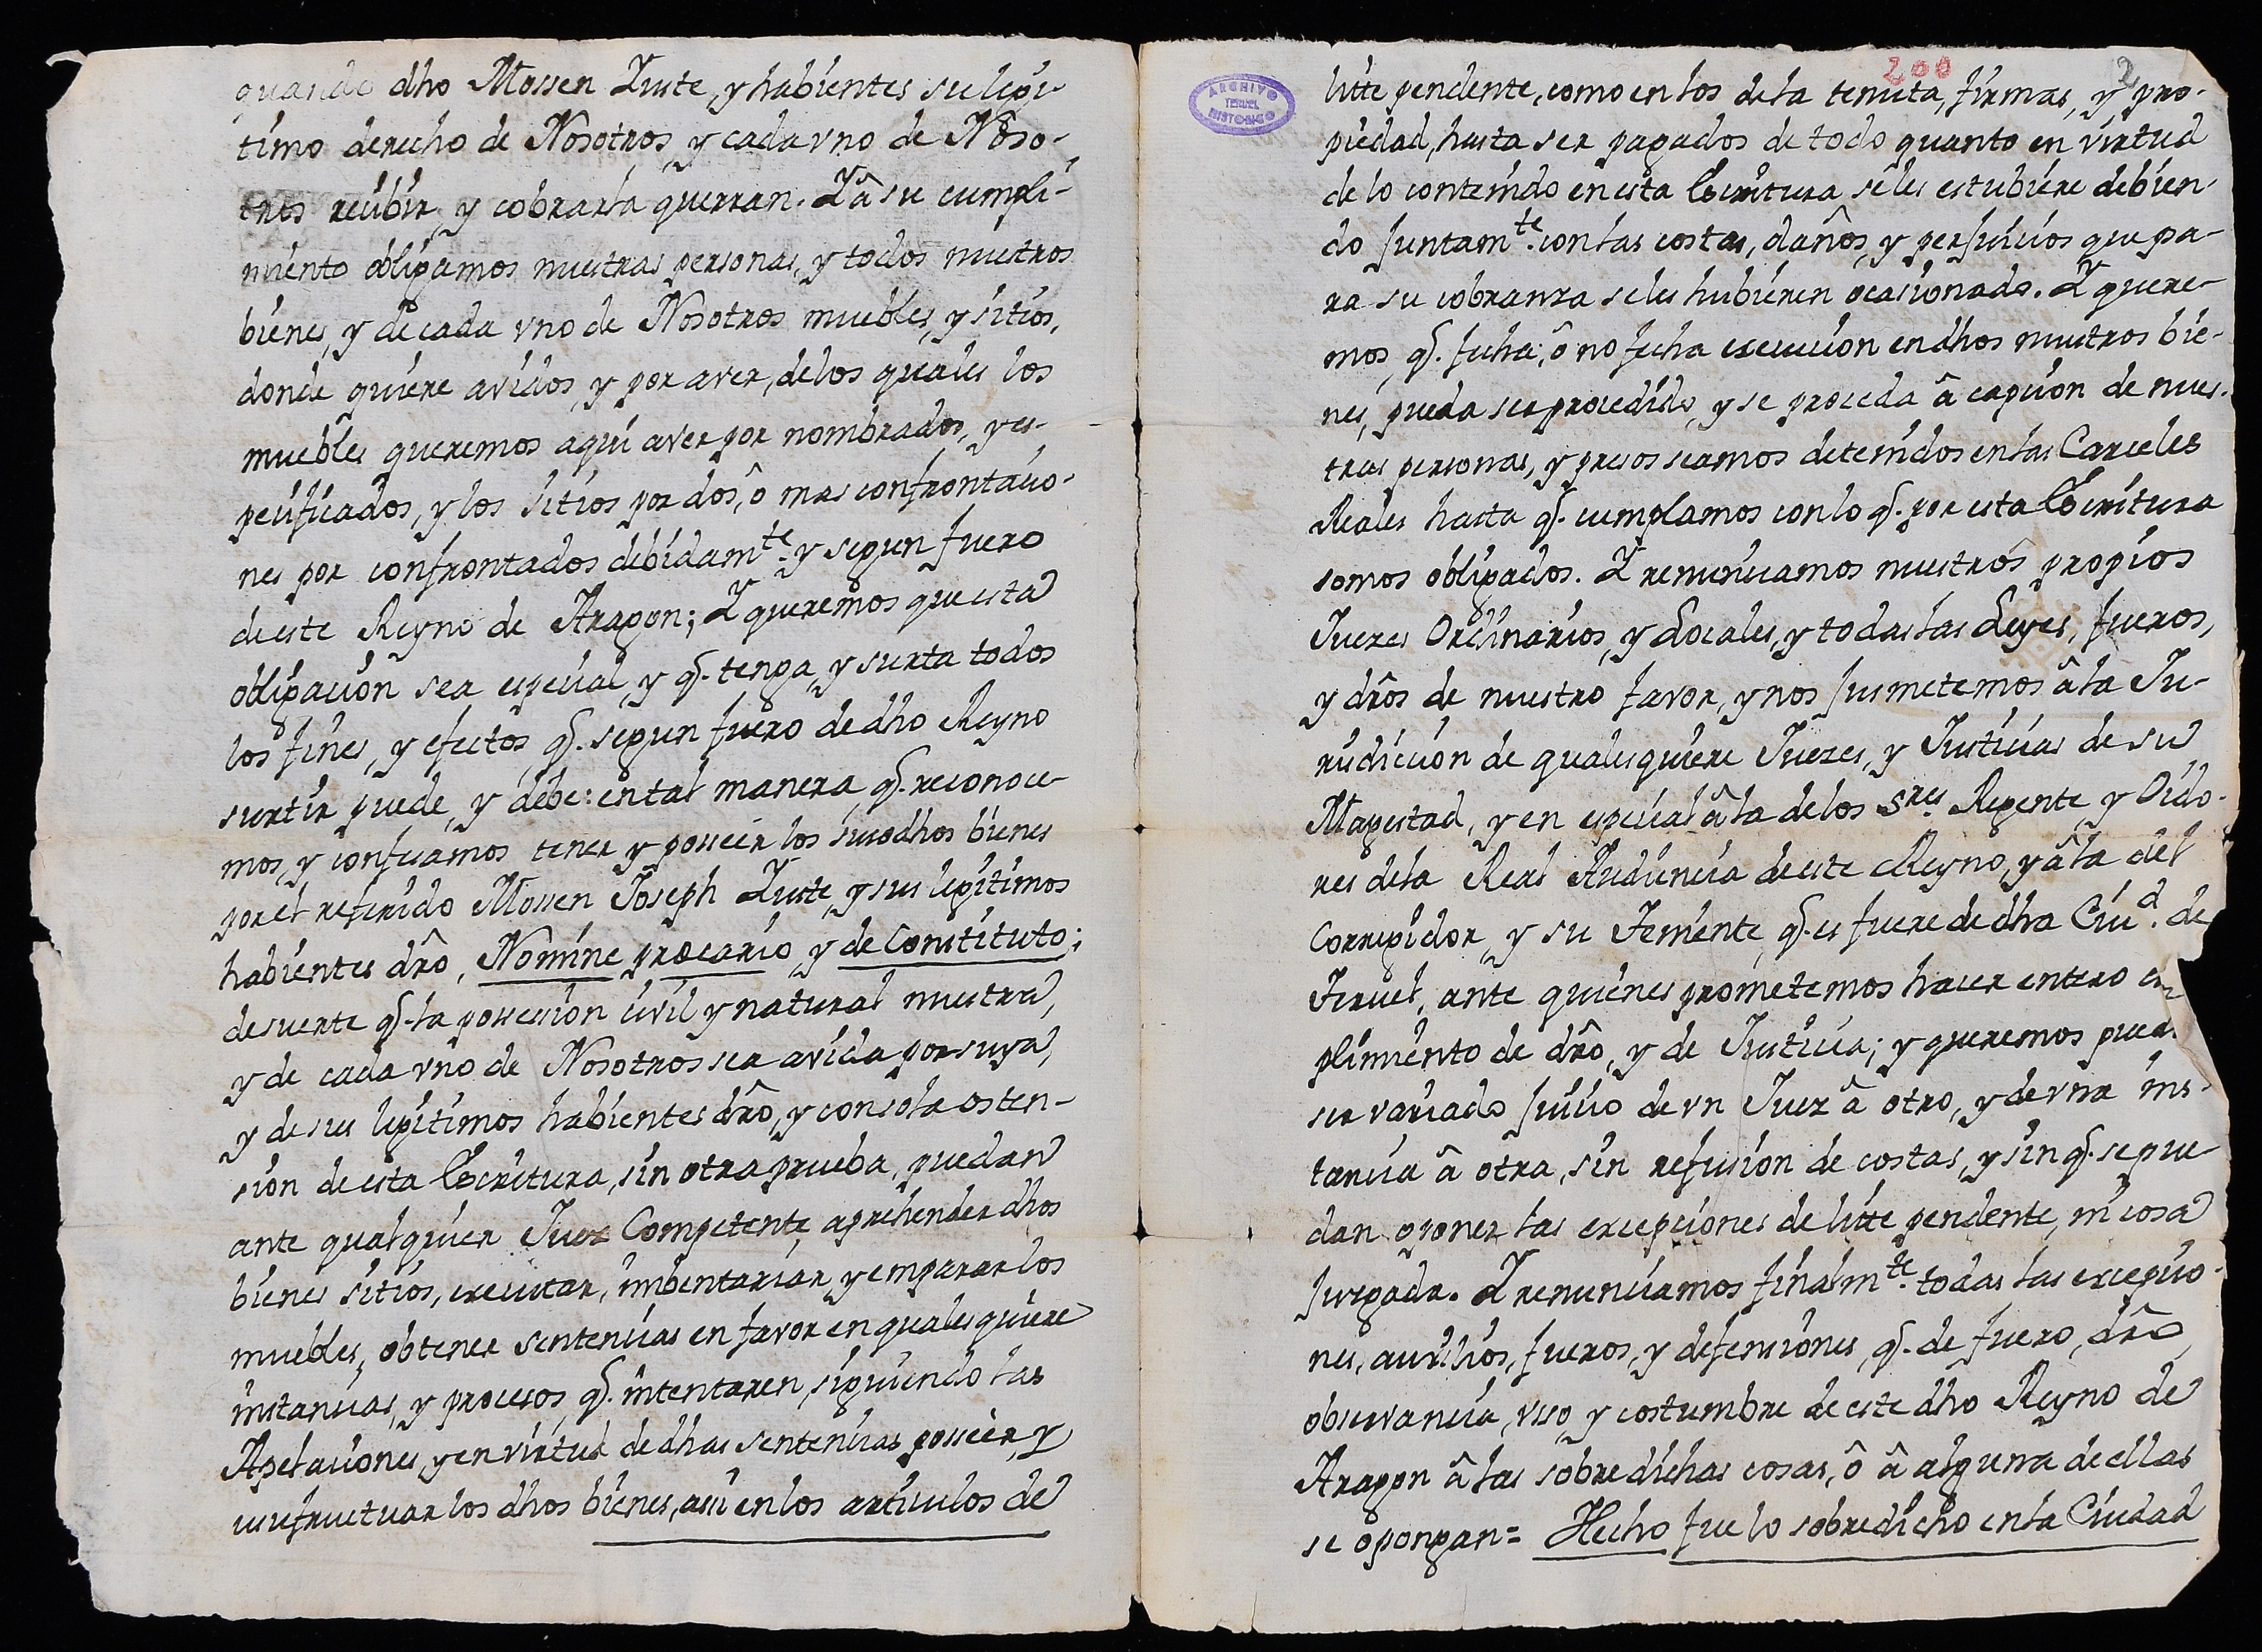 quando dho Mossen Yuste, y habientes su legi-
timo derecho de Nosotros, y cada vno de Noso-
tros recibir, y cobrarla querran. Y â su cumpli-
miento obligamos nuestras personas, y todos nuestros
bienes, y de cada vno de Nosotros muebles, y sitios,
donde quiere avidos, y por aver, delos quales los
muebles queremos aqui aver por nombrados, y es-
pecificados, y los sitios por dos, ô mas confrontacio-
nes por confrontados debidamte. y segun fuero
de este Reyno de Aragon; Y queremos que esta
obligacion sea especial, y q. tenga, y surta todos
los fines, y efectos, q. segun fuero de dho Reyno
surtir puede, y debe: en tal manera, q. reconoce-
mos, y confesamos tener y posseer los susodhos bienes
por el referido Mossen Joseph Yuste, y sus legitimos
habientes drô, Nomine precario, y de Constituto;
de suerte q. la possession civil y natural nuestra,
y de cada vno de Nosotros sea avida por suya,
y de sus legitimos habientes drô, y con sola osten-
sion de esta Escritura, sin otra prueba, puedan
ante qualquier Juez Competente aprehender dhos
bienes sitios, executar, imbentariar, y emparar los
muebles, obtener sentencias en favor en qualesquiere
instancias, y procesos q. intentaren, siguiendo las
Apelaciones, y en virtud de dhas sentencias posseer, y
usufructuar los dhos bienes, assi en los articulos de
ARCHIVO
TERUEL
HISTORICO
200
2
litte pendente, como en los dela tenuta, firmas, y pro-
piedad, hasta ser pagados de todo quanto en virtud
de lo contenido en esta Escritura seles estubiere debien-
do juntamte. con las costas, daños, y perjuicios que pa-
ra su cobranza seles hubieren ocasionado. Y quere-
mos, q. fecha, ô no fecha execucion en dhos nuestros bie-
nes, pueda ser procedido, y se proceda â capcion de nues-
tras personas, y presos seamos detenidos en las Carceles
Reales hasta q. cumplamos con lo q. por esta Escritura
somos obligados. Y renunciamos nuestros propios
Juezes Ordinarios, y Locales, y todas las Leyes, fueros,
y drôs de nuestro favor, y nos jusmetemos â la Ju-
risdiccion de qualesquiere Juezes, y Justicias de su
Magestad, y en especial â la delos Sres. Regente, y Oido-
res dela Real Audiencia de este Reyno, y â la del
Corregidor, y su Teniente, q. es fuere de dha Ciud. de
Teruel, ante quienes prometemos hacer entero cu
plimiento de drô, y de Justicia; y queremos pueda
ser variado juicio de vn Juez â otro, y de vna ins-
tancia â otra, sin refusion de costas, y sin q. se pue-
dan oponer las excepciones de litte pendente, ni cosa
juzgada. Y renunciamos finalmte. todas las excepcio-
nes, auxilios, fueros, y defensiones, q. de fuero, drô,
observancia, vso, y costumbre de este dho Reyno de
Aragon â las sobredichas cosas, ô â alguna de ellas
se opongan = Hecho fue lo sobredicho en la Ciudad